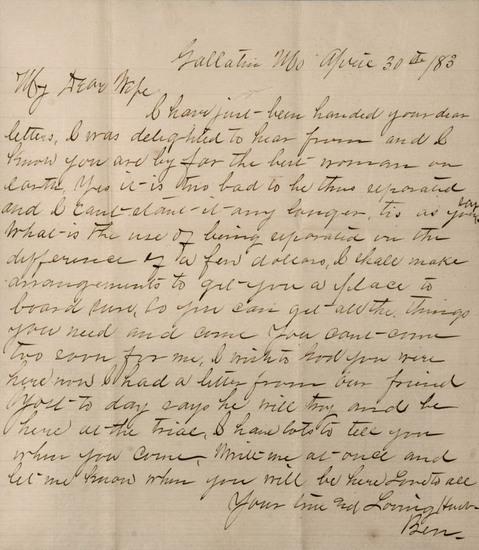 Gallatin Mo April 30th /83
My Dear Wife
I have just been handed your dear
letters, I was delighted to hear from and I
know you are by far the best woman on
earth, Yes it is two bad to be thus seperated
and I cant stant it any longer, tis as you say
What is the use of being seperated on the
difference of a few dollars, I shall make
arrangements to get you a place to
board sure, So you can get all the things
you need and come You cant come
too soon for me, I wish to God you were
here now I had a letter from our friend
Yost to day says he will try and be
here at the trial, I have lots to tell you
when you come, Write me at once and
let me know when you will be here Love to all
Your true and Loving Husb
Ben